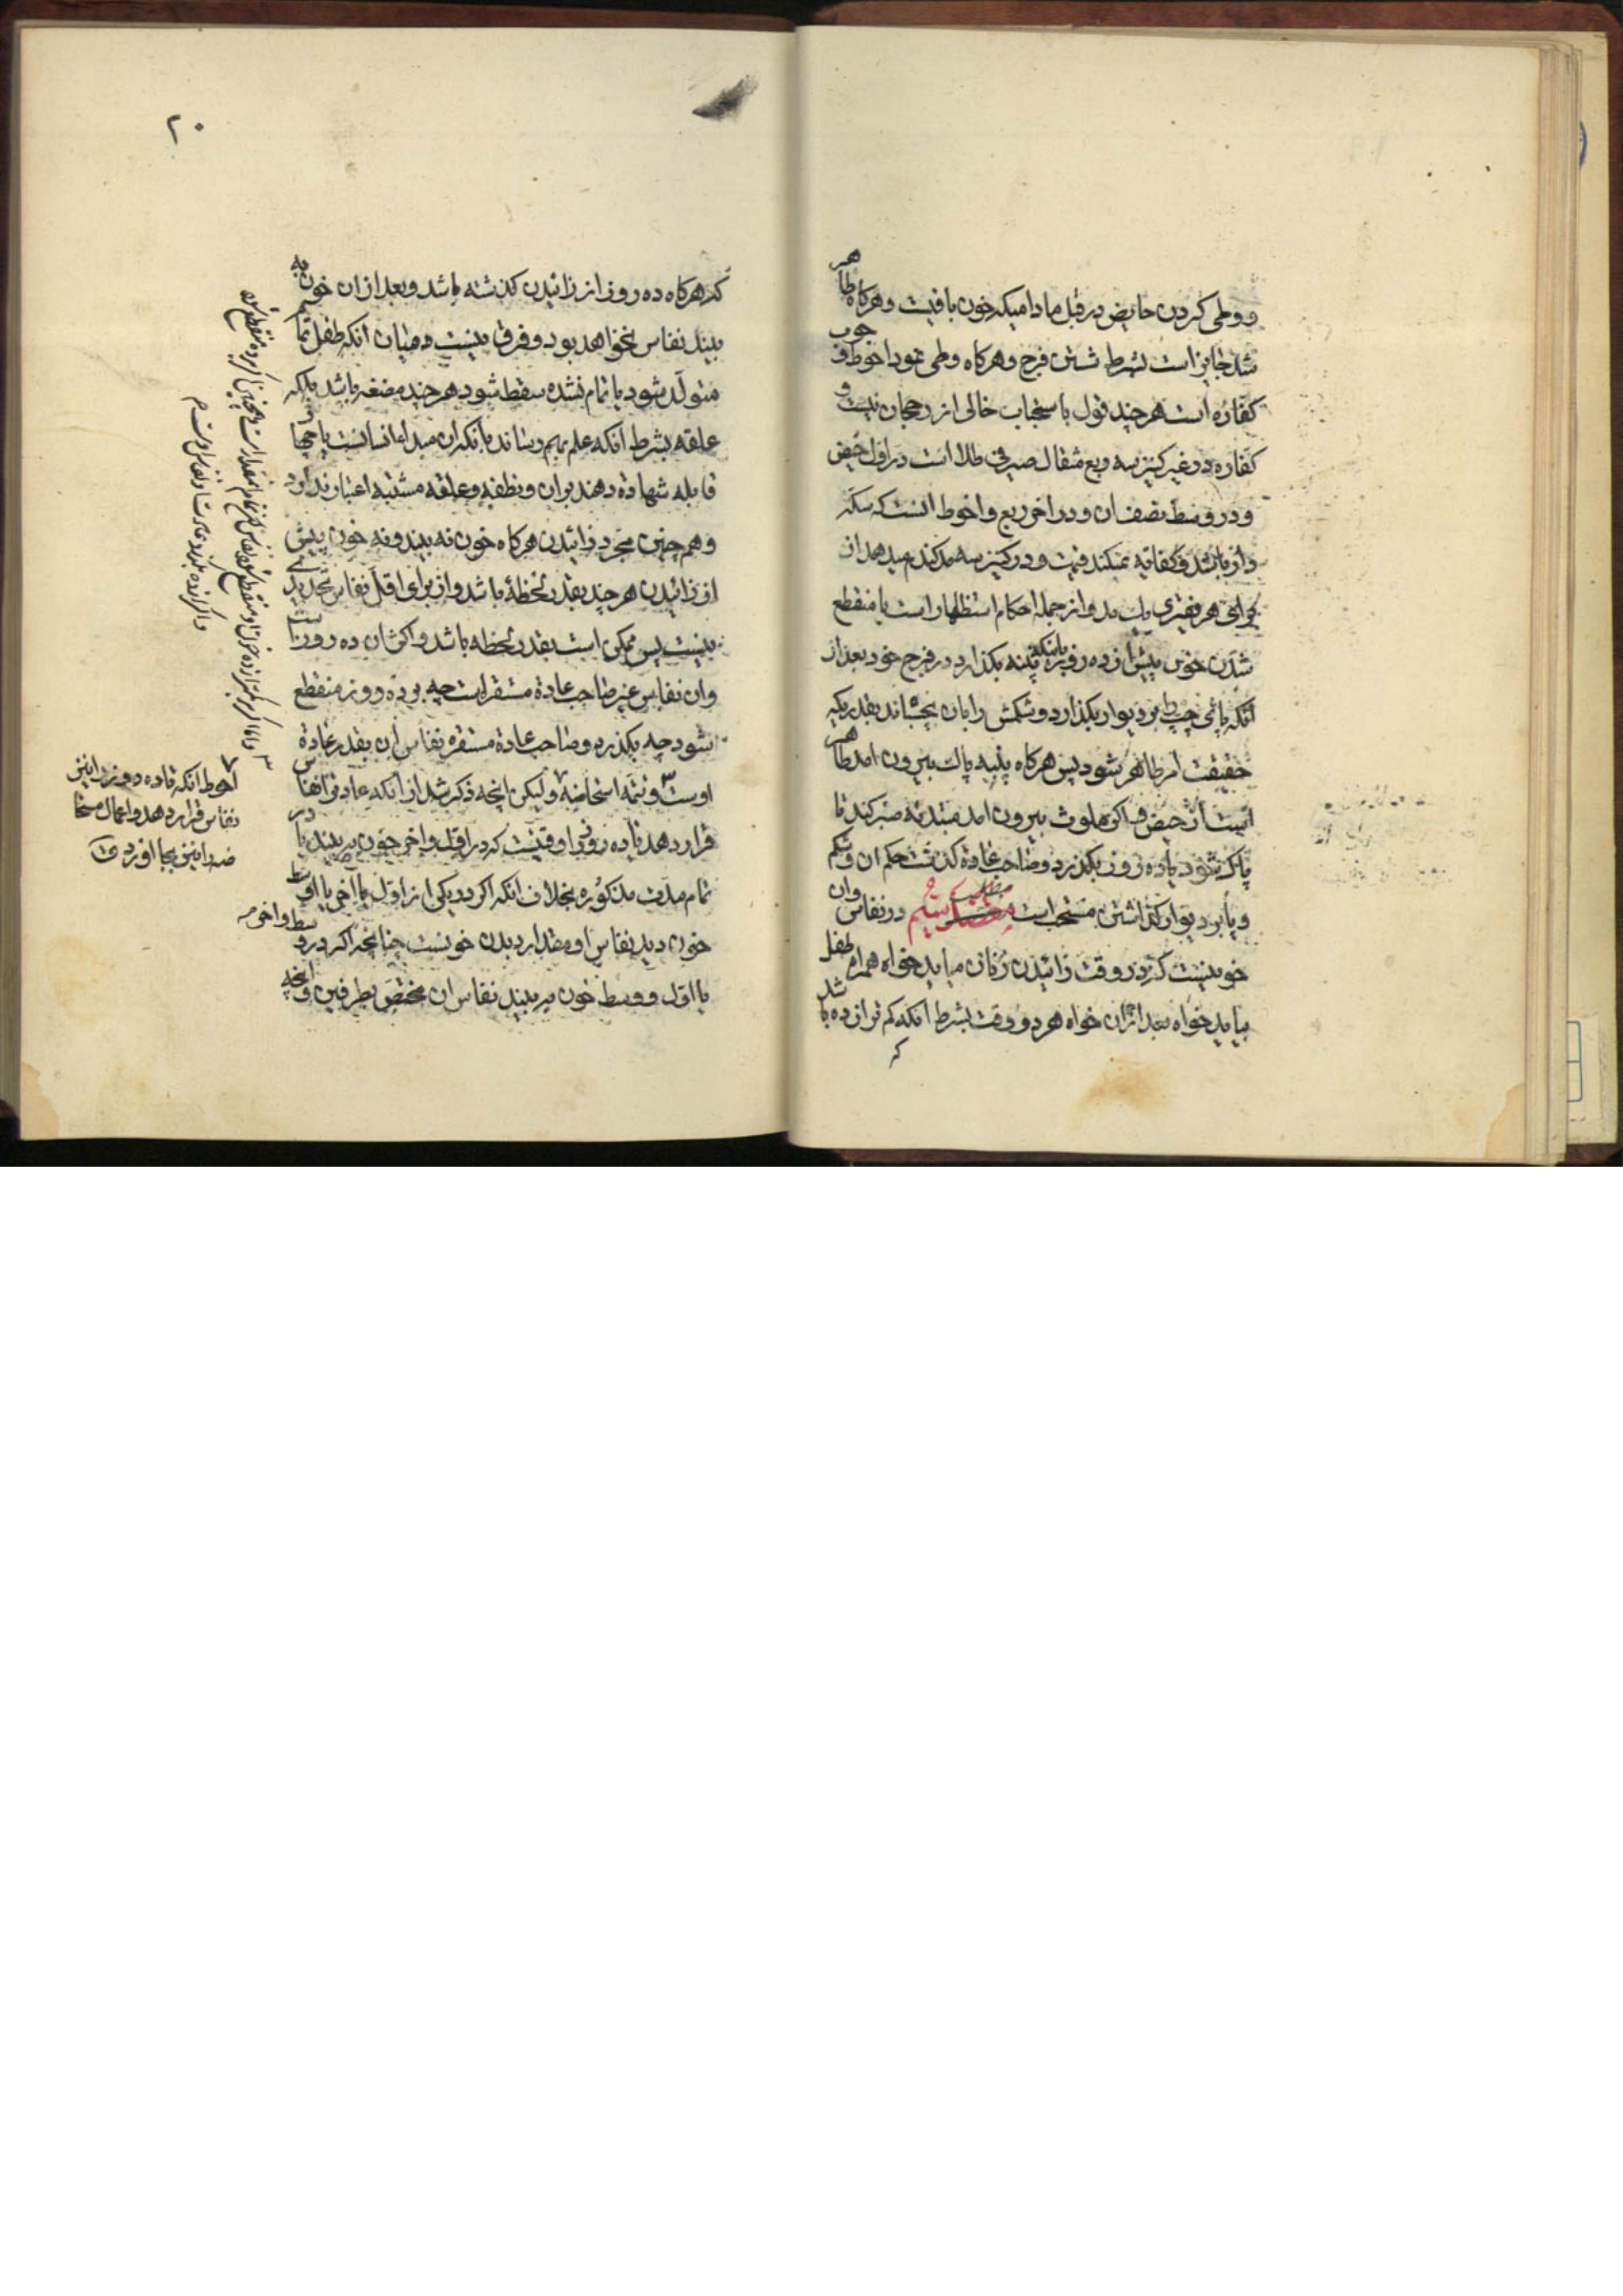 و وطی کردن حایض در قبل مادامیکه خون باقیست و هرکاه طاهر
شد جایز است بشرط شستن فرج و هرکاه وطی نمود احوط وجوب
کفاره است هر چند قول باستحباب خالی از رجحان نیست و
کفاره در غیر کنیز سه ربع مثقال صیرفی طلا است در اول حیض
و در وسط نصف ان و در اخر ربع و احوط انست که سکه
دار باشد و کفایه نمیکند قیمت و در کنیز سه مد کندم میدهد از
برای هر فقیری یک مد و از جمله احکام استظهار است با منقطع
شدن خون پیش از ده روز باینکه پنبه بکذارد در فرج خود بعد از
انکه پای چپ را بر دیوار بکذارد و شکمش را بان بچسباند بقدریکه
حقیقت امر ظاهر شود پس هرکاه پنبه پاک بیرون امد طاهر
است از حیض و اکر ملوث بیرون امد مبتدئه صبر کند تا
پاک شود یا ده روز بکذرد و صاحب عادة کذشت حکم ان و شکم
و پا بر دیوار کذاشتن مستحب است در نفاس وان
خونیست که در وقت زائیدن زنان میاید خواه همراه طفل
بیاید خواه بعد از ان خواه هر دو وقت بشرط انکه کم تر از ده باشد
که
۲۰
که هرکاه ده روز از زائیدن کذشته باشد و بعد از ان خون به
بیند نفاس نخواهد بود و فرقی نیست در میان انکه طفل تمام
متولد شود یا تمام نشده سقط شود هر چند مضغه باشد بلکه
علقه بشرط انکه علم بهم رساند بانکه ان مبدأ انسانست یا چهار
قابله شهادة دهند بران و نطفه و علقه مشتبه اعتبار ندارد
و هم چنین مجرد زائیدن هرکاه خون نه بیند و نه خون پیش
از زائیدن هر چند بقدر لحظهٔ باشد و از برای اقل نفاس تحدیدی
نیست پس ممکن است بقدر لحظه باشد و اکثر ان ده روز است
وان نفاس غیر صاحب عادة مستقره است چه بر ده روز منقطع
شود چه بکذرد و صاحب عادة مستقره نفاس ان بقدر عادة
اوست و تتمه استحاضه و لیکن انچه ذکر شد از انکه عادة را نفاس
قرار دهد تا ده روز در وقتیست که در اول و اخر خون به بیند یا در
تمام مدت مذکوره بخلاف انکه اکر در یکی از اول یا آخر یا اوسط
خون دید نفاس او مقدار دیدن خونست چنانچه اکر در وسط و اخر
یا اول و وسط خون به بیند نفاس ان مختص بطرفین و انچه
احوط انکه تا ده روز را نیز
نفاس قرار دهد و اعمال مستحا
ضه را نیز بجا اورد